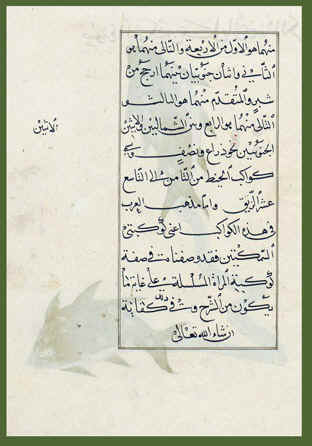 منهما هو الاول من الاربعة والتالي منهما هو
الثاني واثنان جنوبيان بينهما ارجح من
شبر والمتقدم منهما هو الثالث
التالي منهما هو الرابع وبين الشماليين والاثنين
الاثنين
الجنوبيين نحو ذراع ونصف وفي
كواكب الخيط من الثامن الى التاسع
عشر الريق واما مذهب العرب
في هذه الكواكب اعني كوكبتي
السمكتين فقد وصفناه في صفة
كوكبة المراة المسلسلة على غاية ما
يكون من الشرح وفي ذلك كفاية
ان شاء الله تعالى